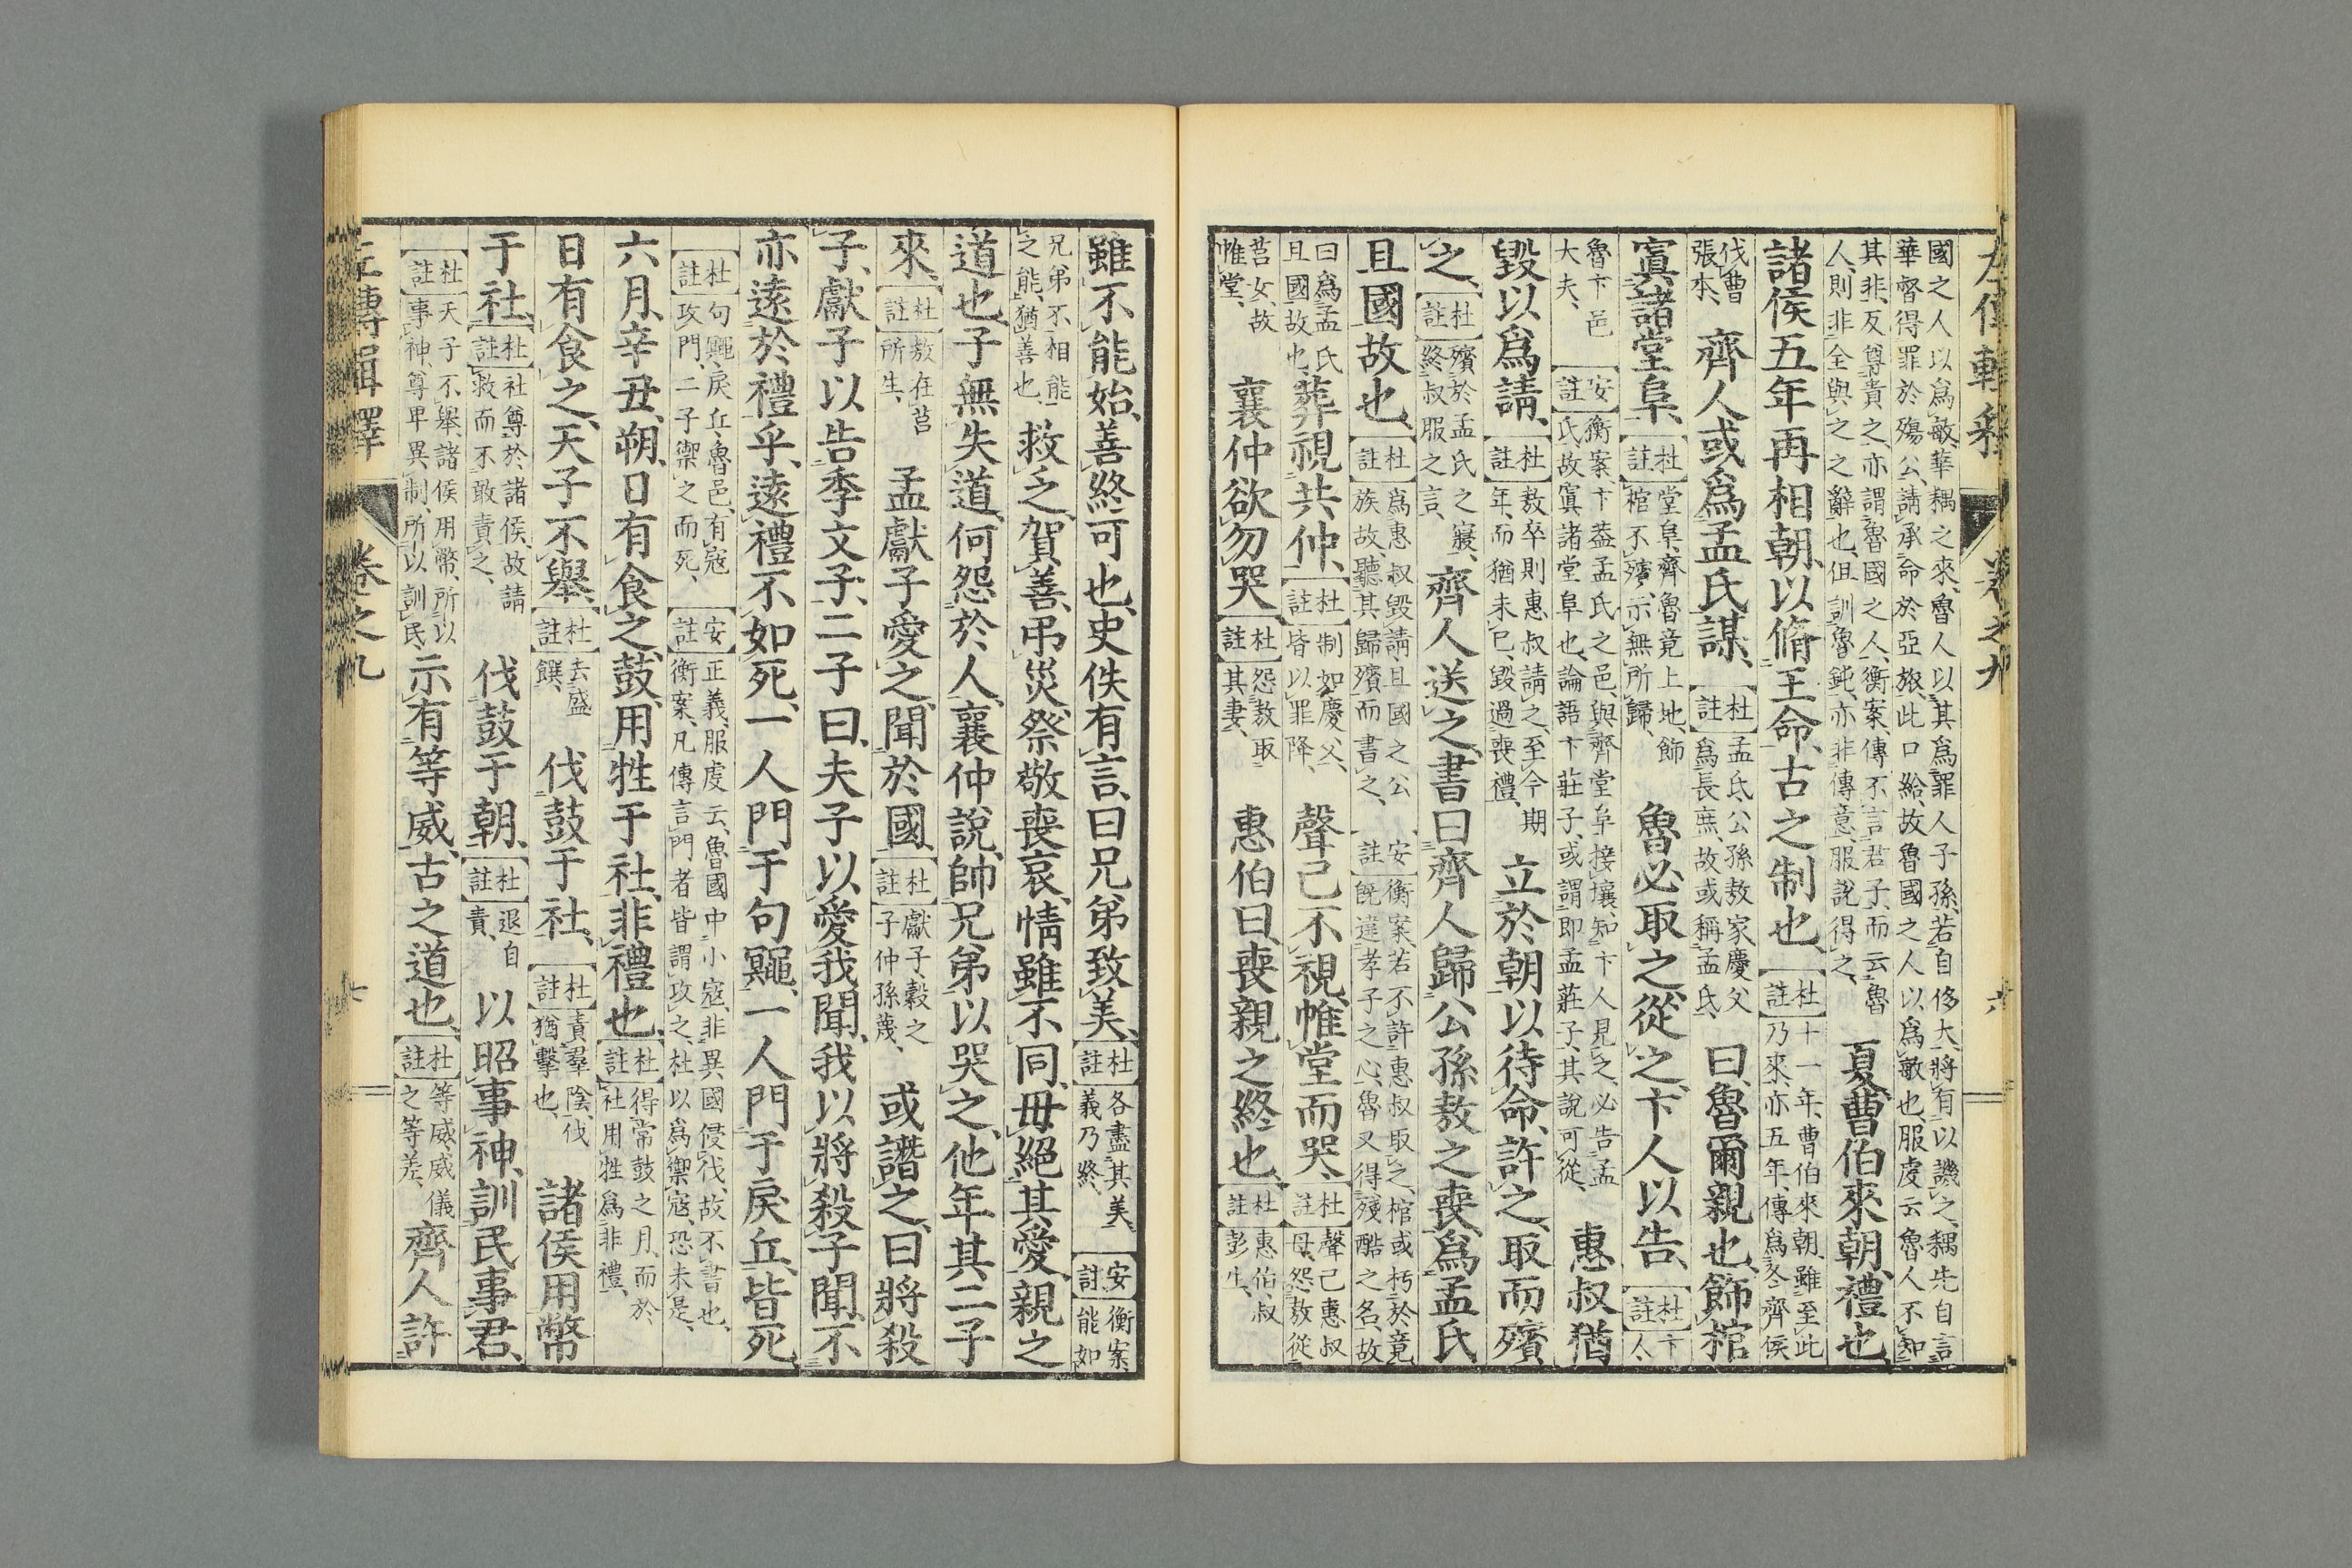 國之人以爲敏、華耦之來、魯人以其爲罪人子孫、若自侈大、將有以譏之、耦先自言
華督得罪於殤公、請承命於亞旅、此口給、故魯國之人以爲敏也、服虔云、魯人不知
其非、反尊貴之、亦謂魯國之人、衡案、傳不言君子、而云魯
人、則非全與之之辭也、但訓魯鈍、亦非傳意、服說得之、
夏、曹伯來朝、禮也、
諸侯五年再相朝、以脩王命、古之制也、
杜註 十一年、曹伯來朝、雖至此
乃來、亦五年、傳爲冬齊侯
伐曹
張本、
齊人或爲孟氏謀、
杜註 孟氏、公孫敖家、慶父
爲長庶、故或稱孟氏、
曰、魯爾親也、飾棺
寘諸堂阜、
杜註 堂阜、齊魯竟上地、飾
棺不殯、示無所歸、
魯必取之、從之、卞人以告、
杜註 卞
人、
魯卞邑
大夫、
安註 衡案、卞蓋孟氏之邑、與齊堂阜接壤、知卞人見之、必告孟
氏、故寘諸堂阜也、論語卞莊子、或謂即孟莊子、其說可從、
惠叔猶
毀以爲請、
杜註 敖卒則惠叔請之、至今期
年、而猶未已、毀過喪禮、
立於朝以待命、許之、取而殯
之、
杜註 殯於孟氏之寢、
終叔服之言、
齊人送之、書曰齊人歸公孫敖之喪、爲孟氏
且國故也、
杜註 爲惠叔毀請、且國之公
族、故聽其歸殯而書之、
安註 衡案、若不許惠叔取之、棺或朽於竟、
旣違孝子之心、魯又得殘酷之名、故
曰爲孟氏
且國故也、
葬視共仲、
杜註 制如慶父、
皆以罪降、
聲己不視、帷堂而哭、
杜註 聲己、惠叔
母、怨敖從
莒女、故
帷堂、
襄仲欲勿哭、
杜註 怨敖取
其妻、
惠伯曰、喪親之終也、
杜註 惠伯、叔
彭生、
雖不能始、善終可也、史佚有言、曰兄弟致美、
杜註 各盡其美、
義乃終、
安註 衡案、
能如
兄弟不相能
之能、猶善也、
救乏、賀善、弔災、祭敬、喪哀、情雖不同、毋絕其愛、親之
道也、子無失道、何怨於人、襄仲說、帥兄弟以哭之、他年其二子
來、
杜註 敖在莒
所生、
孟獻子愛之、聞於國、
杜註 獻子、穀之
子仲孫蔑、
或譖之、曰將殺
子、獻子以告季文子、二子曰、夫子以愛我聞、我以將殺子聞、不
亦遠於禮乎、遠禮不如死、一人門于句鼆、一人門于戾丘、皆死、
杜註 句鼆、戾丘、魯邑、有寇
攻門、二子禦之而死、
安註 正義、服虔云、魯國中小寇、非異國侵伐、故不書也、
衡案、凡傳言門者、皆謂攻之、杜以爲禦寇、恐未是、
六月、辛丑、朔、日有食之、鼓、用牲于社、非禮也、
杜註 得常鼓之月、而於
社用牲爲非禮、
日有食之、天子不舉、
杜註 去盛
饌、
伐鼓于社、
杜註 責羣陰、伐
猶擊也、
諸侯用幣
于社、
杜註 社尊於諸侯、故請
救而不敢責之、
伐鼓于朝、
杜註 退自
責、
以昭事神、訓民、事君、
杜註 天子不舉、諸侯用幣、所以
事神、尊卑異制、所以訓民、
示有等威、古之道也、
杜註 等威、威儀
之等差、
齊人許
左傳輯釋 卷之九 七